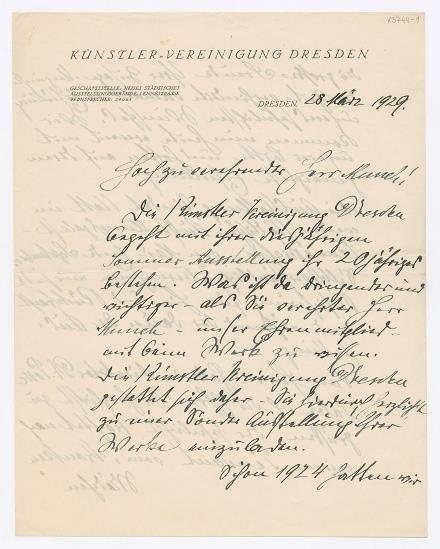 K3744-1
KÜNSTLER-VEREINIGUNG DRESDEN
GESCHÄFTSSTELLE: NEUES STÄDTISCHES
AUSSTELLUNGSGEBÄUDE, LENNÉSTRASSE
FERNSPRECHER:
DRESDEN, 28 März 1929.
Hochzuverehrender Herr Munch!
Die Künstler Vereinigung Dresden
begeht mit ihrer diesjährigen
Sommer Ausstellung ihr 20 jähriges
bestehen. Was ist da dringender und
wichtiger - als Sie verehrter Herr
Munch - unser Ehrenmitglied -
mit beim Werk zu wissen.
Die Künstler Vereinigung Dresden
gestattet sich daher - Sie hierdurch herzlichst
zu einer Sonder Ausstellung Ihrer
Werke einzuladen.
Schon 1924 hatten wir